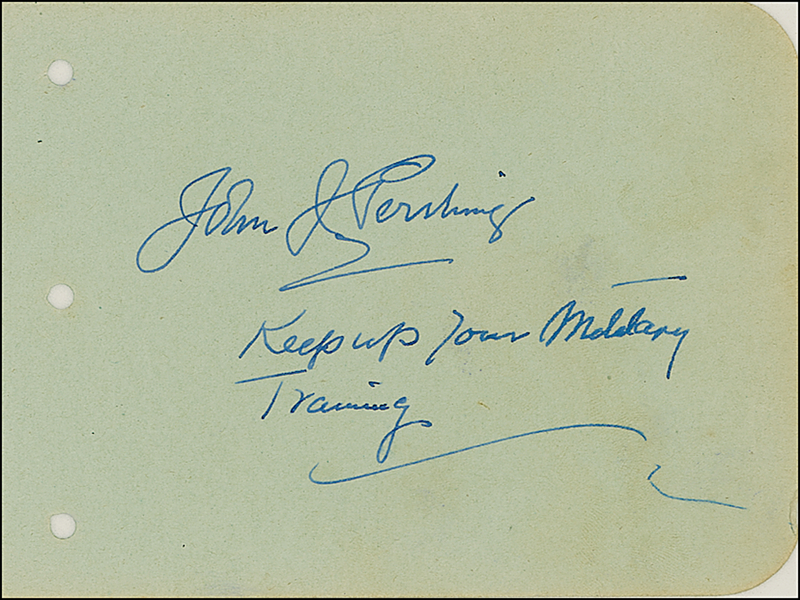 John J Pershing
Keep up Your Military
Training